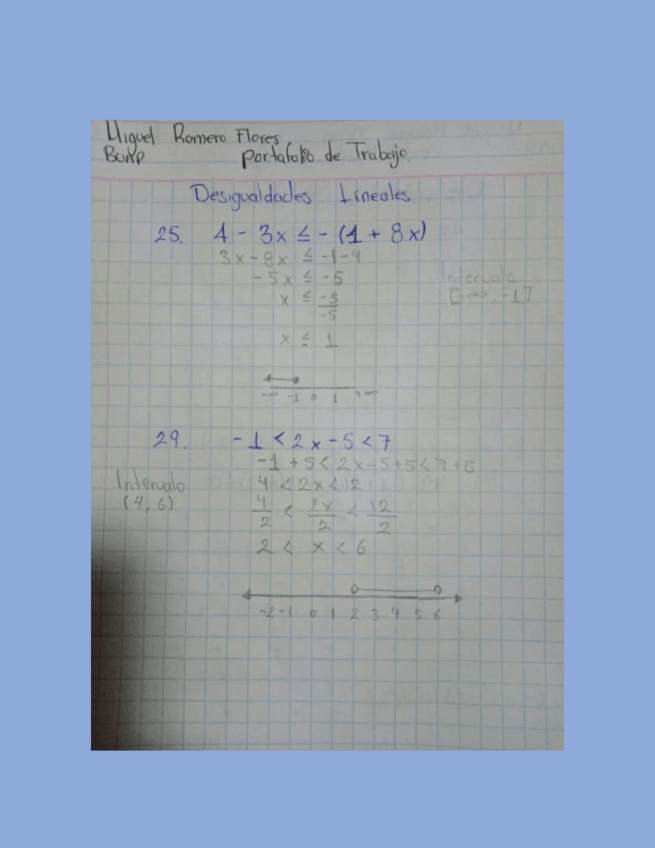 Miguel Romero Flores
BUAP Portafolio de Trabajo.
Desigualdades Lineales.
25. 4 - 3x ≤ - (1 + 8x)
3x - 8x ≤ -1 - 4
- 5x ≤ -5
x ≤ -5/-5
x ≤ 1
Intervalo
[-∞, -1]
-∞ -1 0 1 +∞
29. -1 < 2x - 5 < 7
-1 + 5 < 2x - 5 + 5 < 7 + 5
Intervalo
(4, 6)
4 < 2x < 12
4/2 < 2x/2 < 12/2
2 < x < 6
-2 -1 0 1 2 3 4 5 6